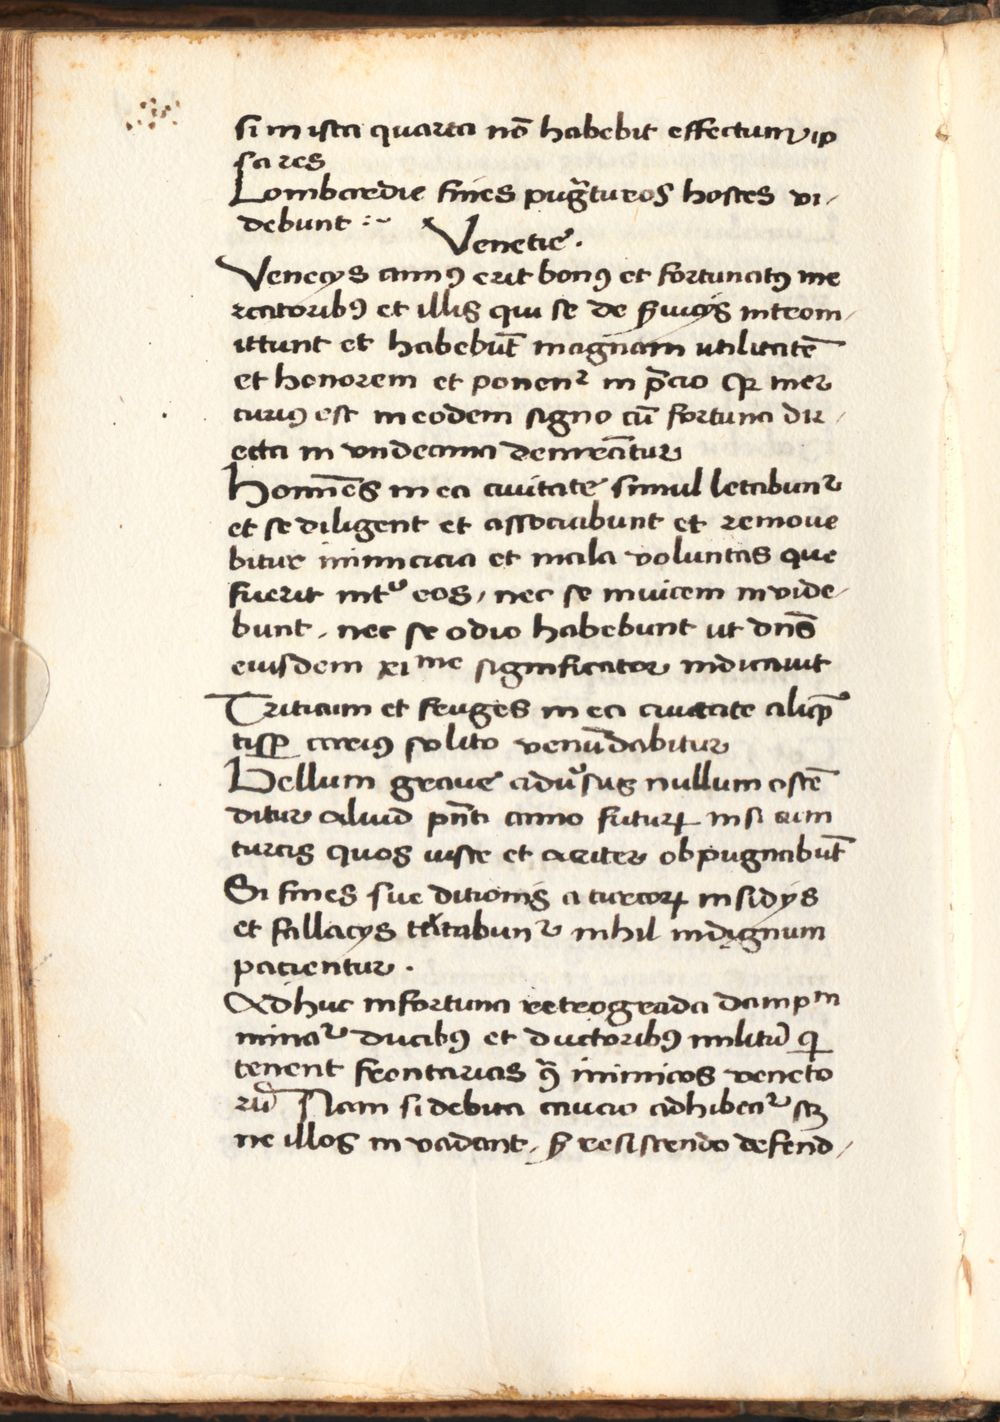 si in ista quarta nō habebit effectum ip
sa res
Lombardie fines pug̃turos hostes vi-
debunt :~
Venetie.
Venecijs annꝰ erit bonꝰ et fortunatꝰ me
rcatoribꝰ et illis qui se de ꝓuicijs introm-
ittunt et habebūt magnam utilitatē
et honorem et ponent᷑ in p̄cio Qꝛ mer
curiꝰ est in eodem signo cū fortuna dir-
ecta in vndecima demrc̄atur
Hom̄es in ea ciuitate simul letabunt᷑
et se diligent et associabunt et remoue
bitur inimicicia et mala voluntas que
fuerit int᷑ eos, nec se inuicem invide-
bunt, nec se odio habebunt ut dn̄s
eiusdem xi me significator indicauit
Triticum et fruges in ea ciuitate aliqꝫ
tisꝑ carius solito venūdabitur
Bellum graue adu᷑sus nullum ostē
ditur aliud pn̄ti anno futurꝝ nisi cum
turcis quos iuste et acriter obpugnabūt
Si fines sue ditionis a turcorꝝ insidijs
et fallacijs tētabunt᷑ nihil indignum
pacientur.
Adhuc infortuna retrograda dampm
minat᷑ ducibꝰ et ductoribꝰ militū qi
tenent frontarias 9ᷓ inimicos veneto
rū Nam si debita caucio adhibeat᷑ sꝫ
ne illos in vadant, ꝓ resistendo defend-